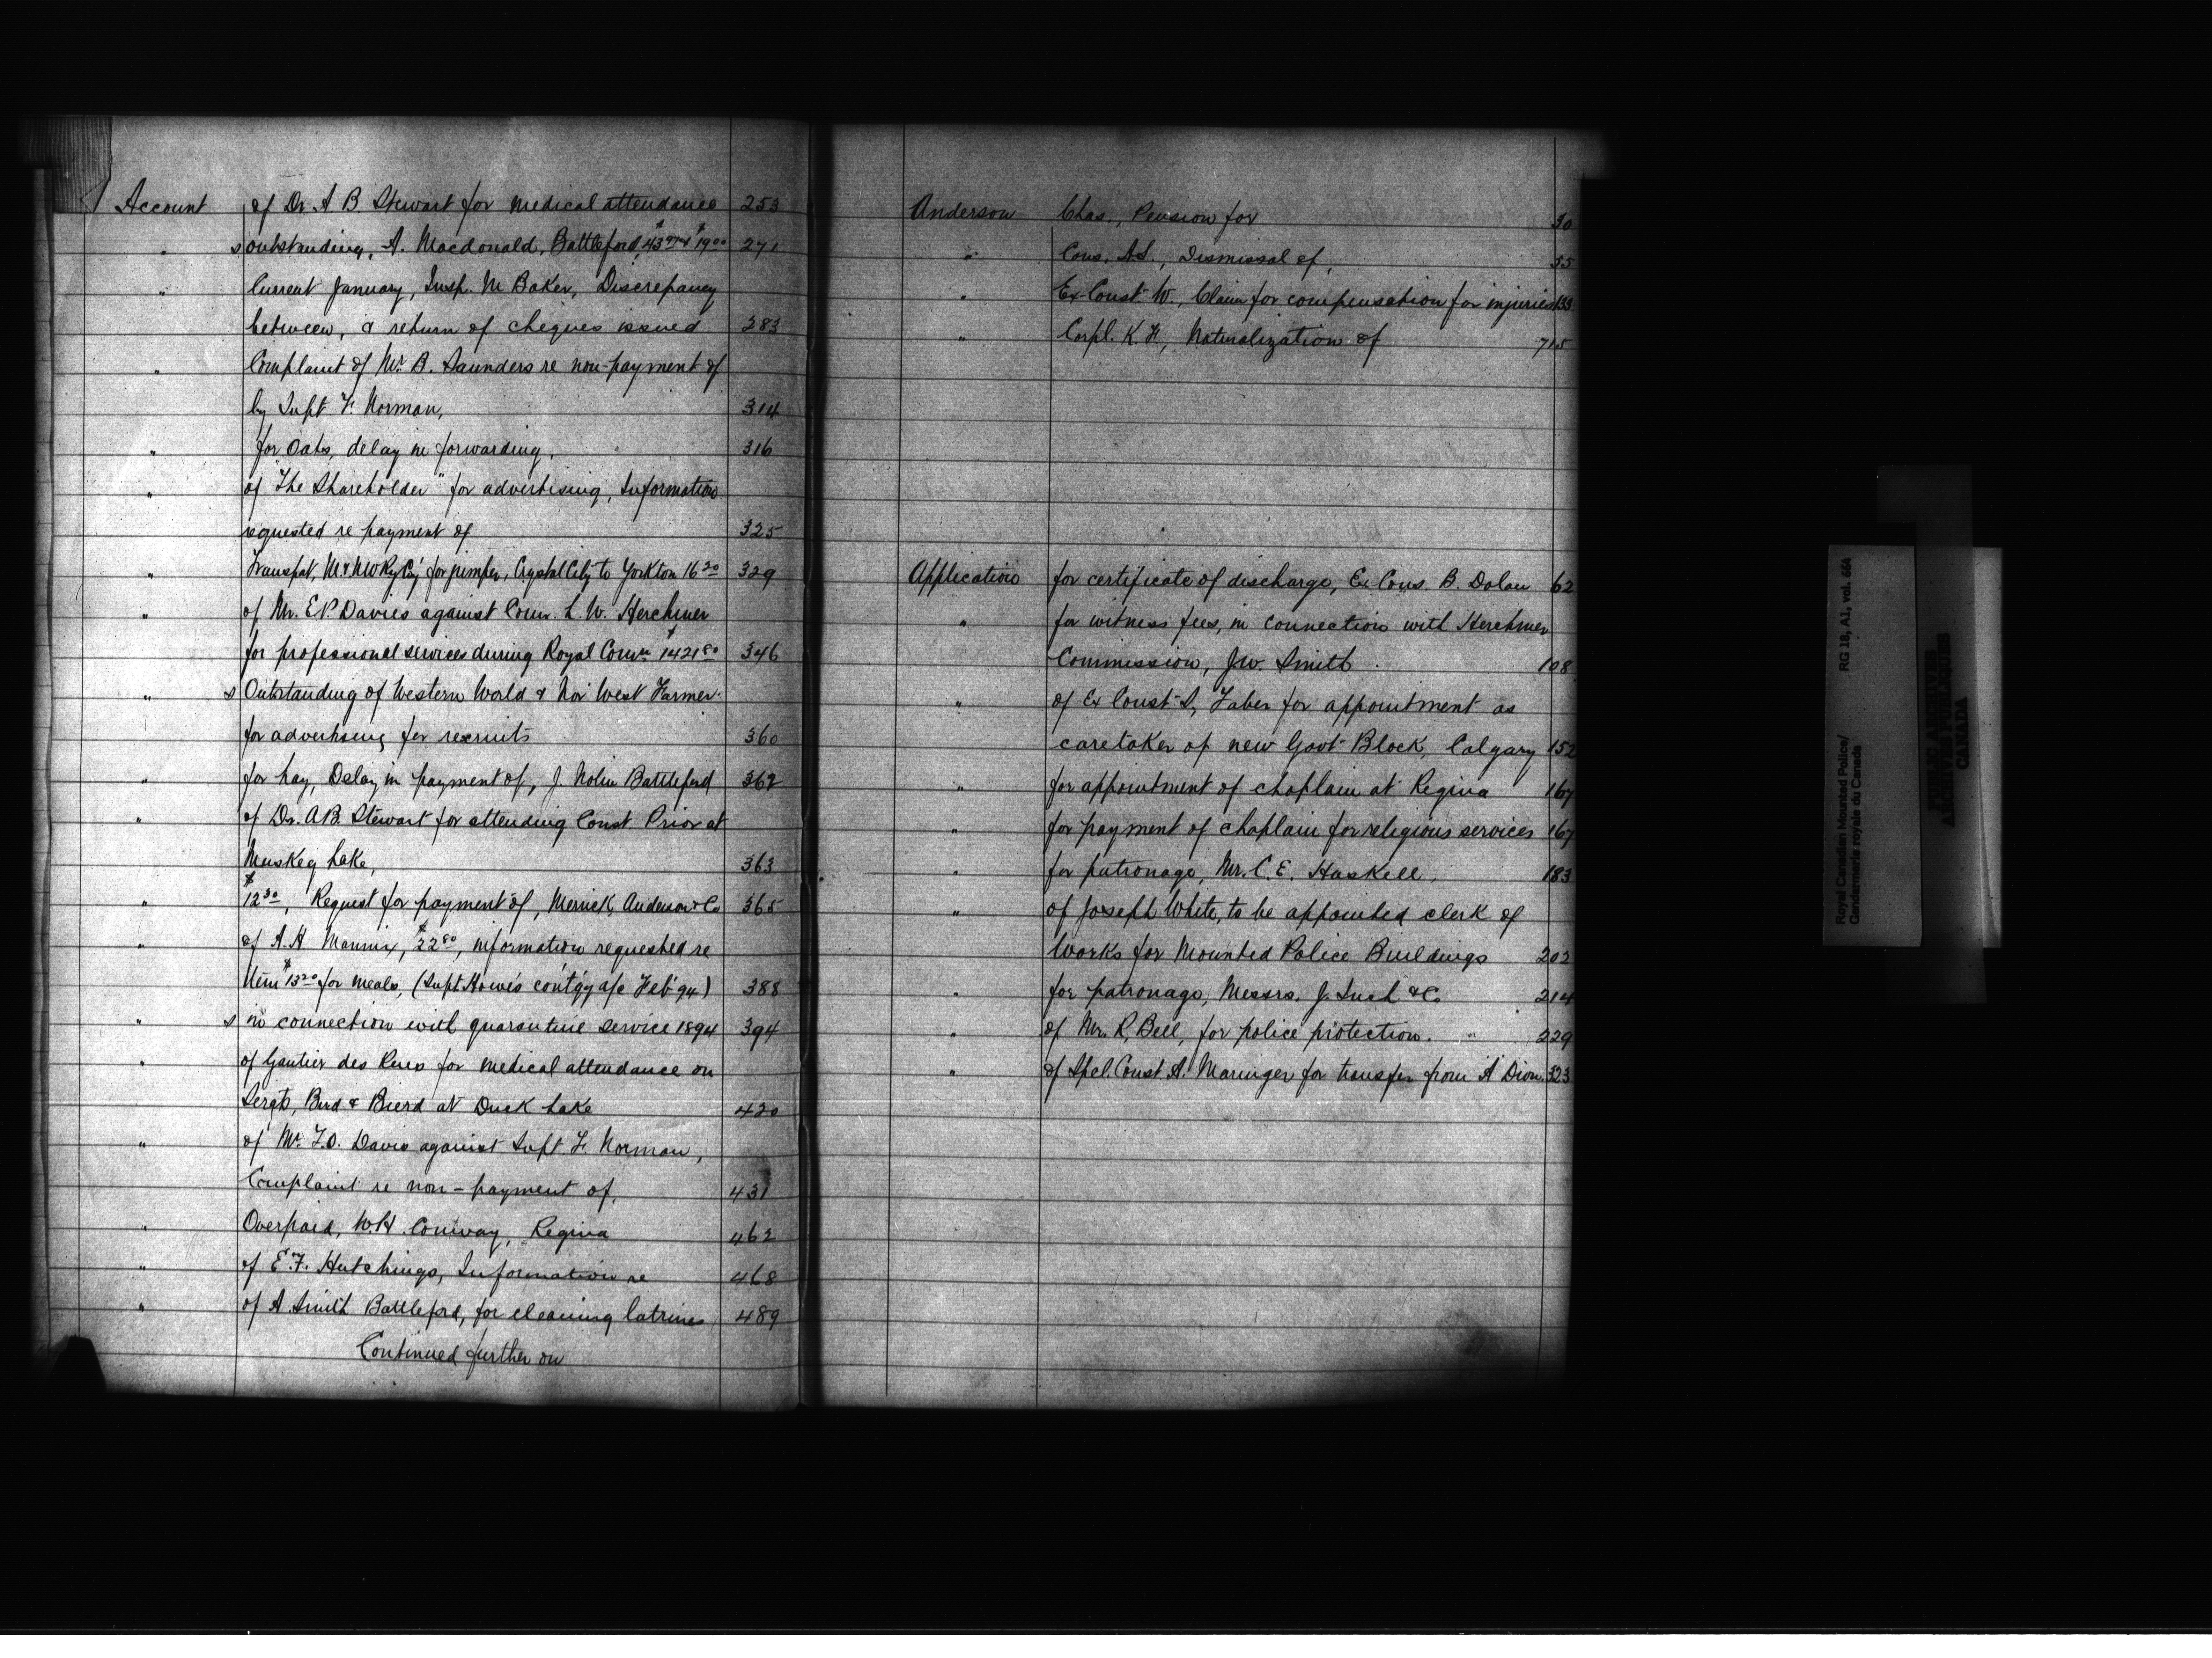 Account of Dr. A. B. Stewart for medical attendance 253
" s outstanding, A. Macdonald, Battleford, $19.00 271
" Current January, Insp. M. Baker, Discrepancy
between, & return of cheques issued 283
" Complaint of Mr. B. Saunders re non-payment of
by Supt. F. Norman, 314
" for Oats, delay in forwarding, 316
" of "The Shareholder" for advertising, Information
requested re payment of 325
" Transpt, M & NW Ry Coy, for Crystal City to Yorkton 16 20 329
" of Mr. E.P. Davies against Comr. L. W. Herchmer
for professional services during Royal Comn. $1421 80 346
" s Outstanding of Western World & Nor West Farmer
for advertising for recruits 360
" for hay, Delay in payment of, J. Nolin Battleford 362
" of Dr. A.B. Stewart for attending Const. Prior at
Muskeg Lake, 363
" $12 30, Request for payment of, Merrick, Anderson & Co 365
" of A. H. Mannix, $22 80, information requested re
Item $13 20 for meals, (Supt. Howe's cont'gy a/c Feb' 94) 388
" s in connection with quarantine service 1894 394
" of Gautier des for medical attendance on
Sergts, Bird & Bierd at Duck Lake 420
" of Mr. T.O. Davis against Supt. F. Norman,
Complaint re non-payment of, 431
" Overpaid, W.H. Conway, Regina 462
" of E.F. Hutchings, Information re 468
" of A. Smith Battleford, for cleaning latrines 489
Continued further on
Anderson Chas., Pension for 30
" Cons. A.S., Dismissal of, 55
" Ex-Const. W., Claim for compensation for injuries 133
" Corpl. K. F., Naturalization of 715
Application for certificate of discharge, Ex Cons. B. Dolan 62
" for witness fees, in connection with Herchmer
Commission, J.W. Smith 108
" of Ex Const. S. Faber for appointment as
caretaker of new Govt. Block, Calgary 152
" for appointment of chaplain at Regina 167
" for payment of chaplain for religious services 167
" for patronage, Mr. C. E. Haskell, 183
" of Joseph White, to be appointed clerk of
Works for Mounted Police Buildings 202
" for patronage, Messrs. J. & Co. 214
" of Mr. R. Bell, for police protection. 229
" of Spel. Const. A. Maringer for transfer from 'A' Divn. 323
Royal Canadian Mounted Police/
Gendarmerie royale du Canada
RG 18, A1, vol. 664
PUBLIC ARCHIVES
ARCHIVES PUBLIQUES
CANADA